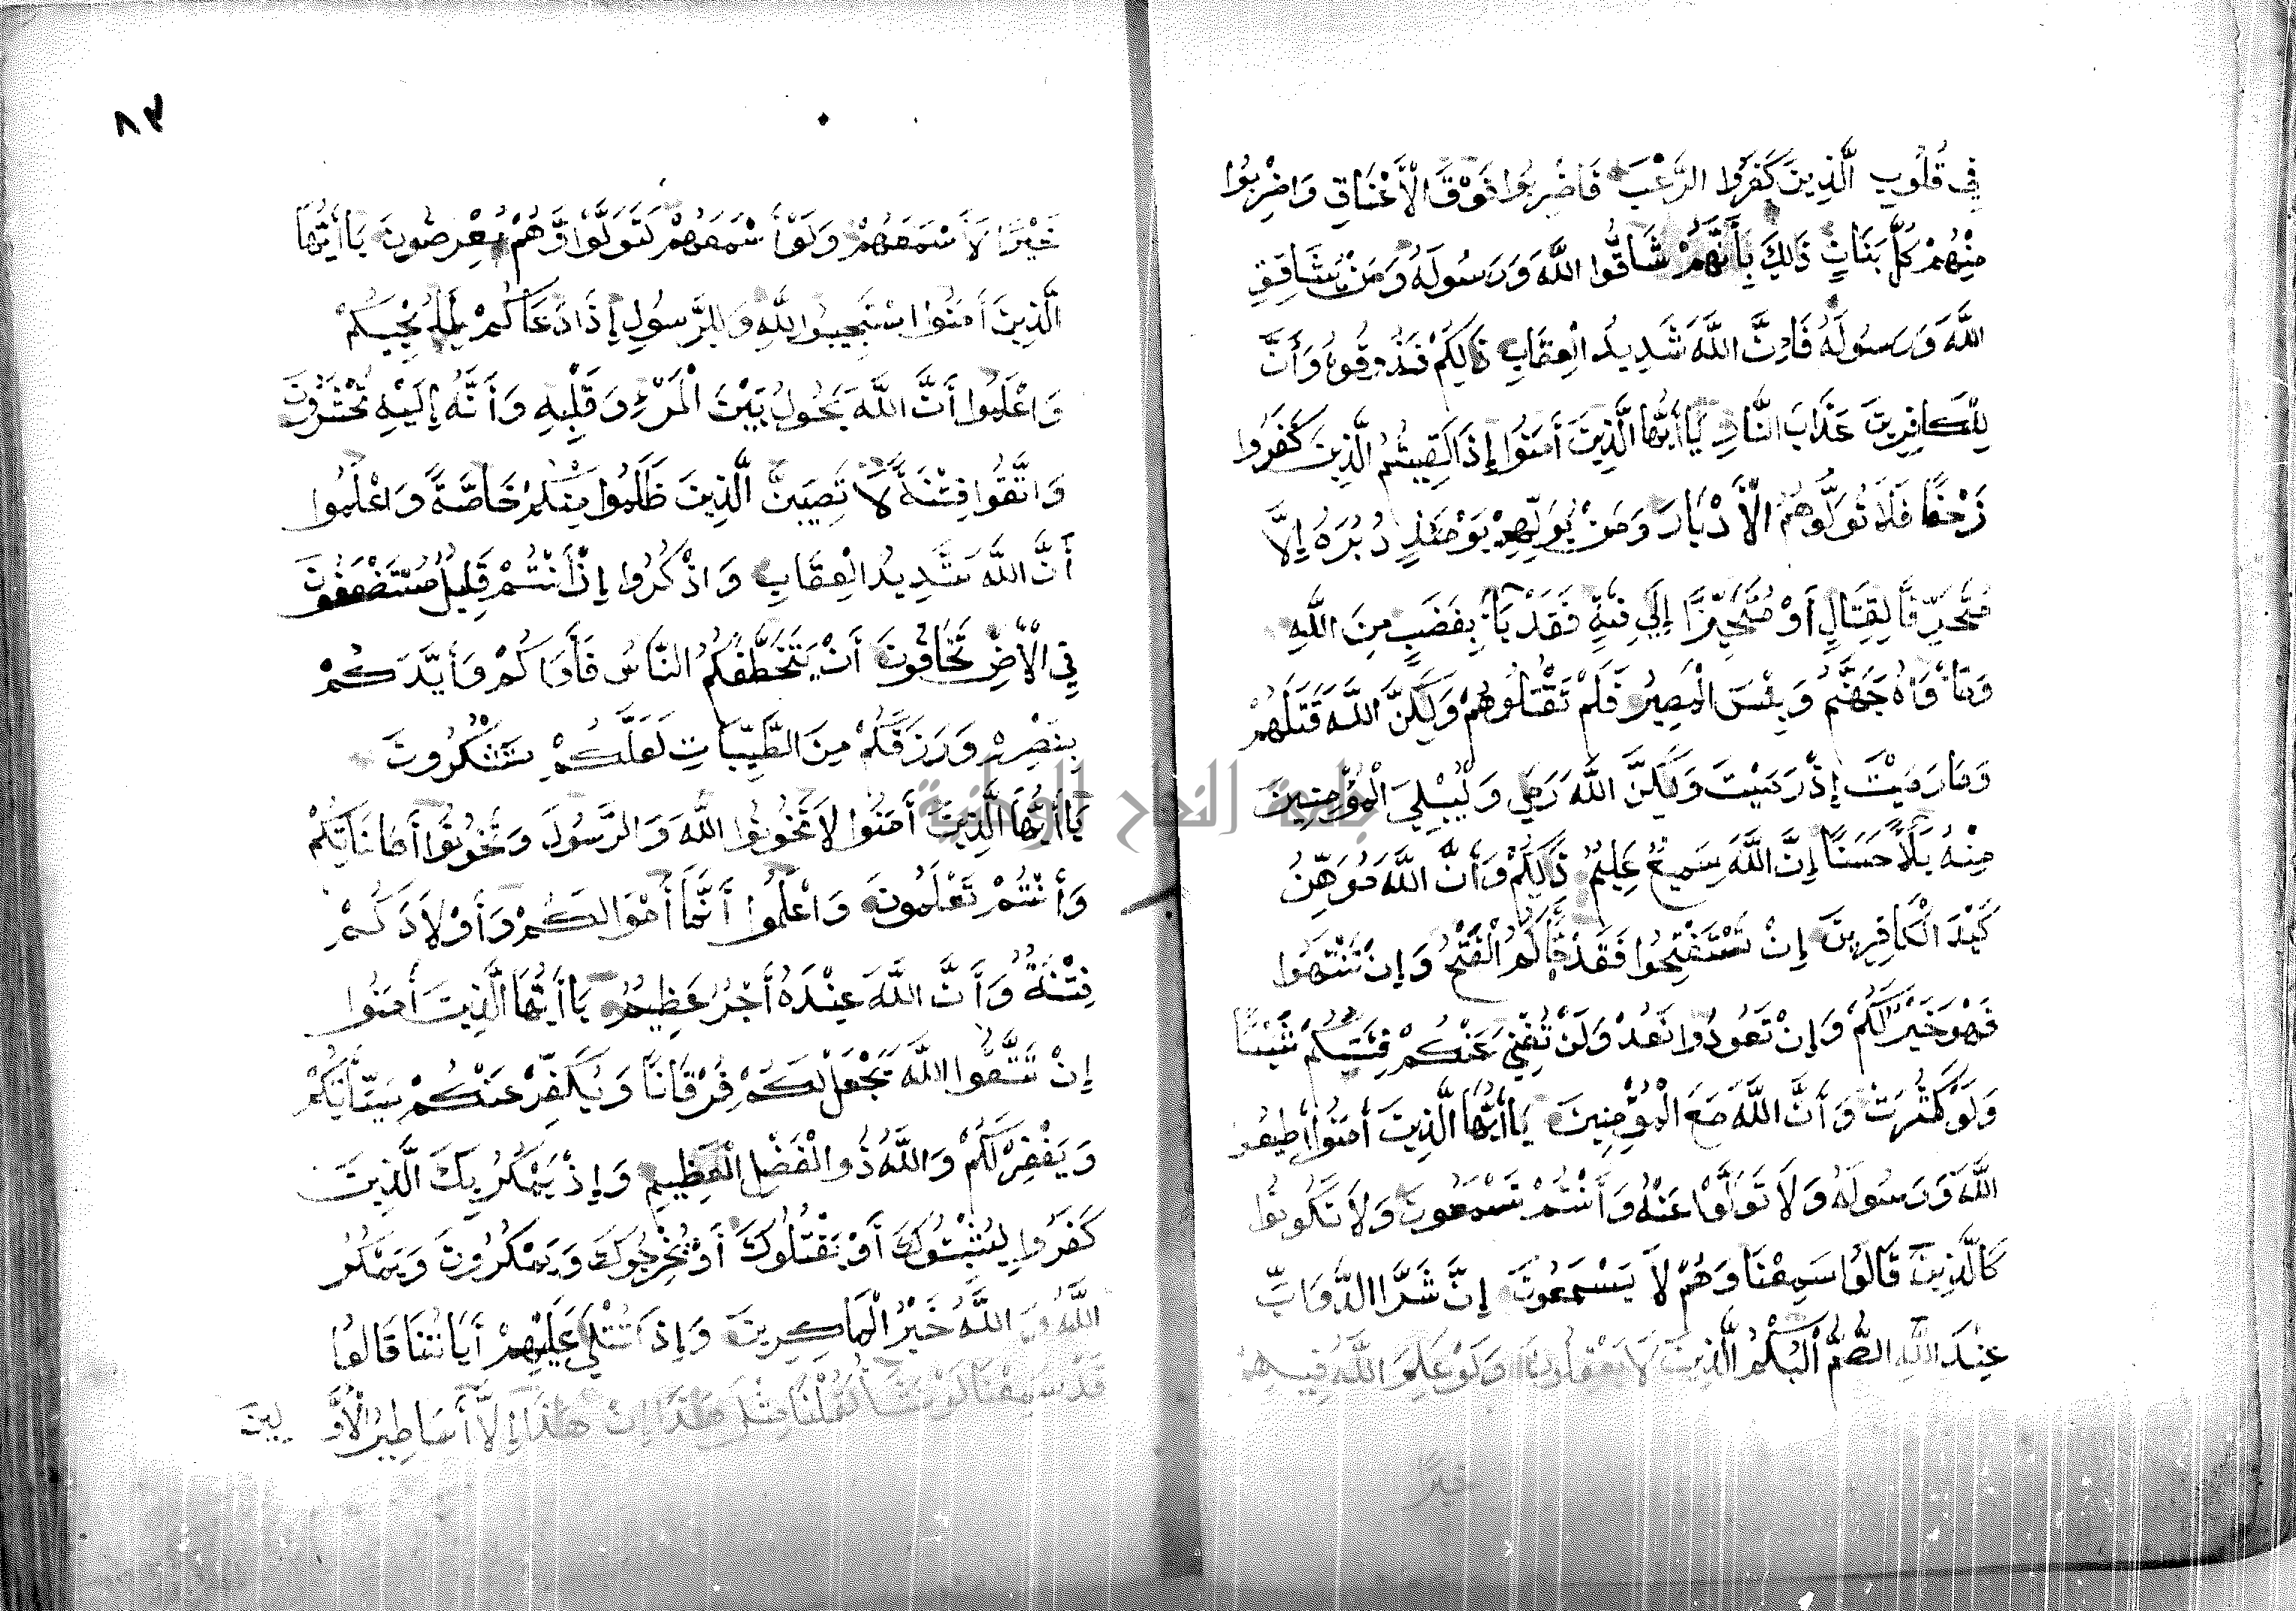 في قُلُوبِ الَّذِينَ كَفَرُوا الرُّعْبَ فَاضْرِبُوا فَوْقَ الْأَعْنَاقِ وَاضْرِبُوا
مِنْهُمْ كُلَّ بَنَانٍ ذَلِكَ بِأَنَّهُمْ شَاقُّوا اللَّهَ وَرَسُولَهُ وَمَنْ يُشَاقِقِ
اللَّهَ وَرَسُولَهُ فَإِنَّ اللَّهَ شَدِيدُ الْعِقَابِ ذَلِكُمْ فَذُوقُوهُ وَأَنَّ
لِلْكَافِرِينَ عَذَابَ النَّارِ يَا أَيُّهَا الَّذِينَ أَمَنُوا إِذَا لَقِيتُمُ الَّذِينَ كَفَرُوا
زَحْفًا فَلَا تُوَلُّوهُمُ الْأَدْبَارَ وَمَنْ يُوَلِّهِمْ يَوْمَئِذٍ دُبُرَهُ إِلَّا
مُتَحَرِّفًا لِقِتَالٍ أَوْ مُتَحَيِّزًا إِلَى فِئَةٍ فَقَدْ بَاءَ بِغَضَبٍ مِنَ اللَّهِ
وَمَأْوَاهُ جَهَنَّمُ وَبِئْسَ الْمَصِيرُ فَلَمْ تَقْتُلُوهُمْ وَلَكِنَّ اللَّهَ قَتَلَهُمْ
وَمَا رَمَيْتَ إِذْ رَمَيْتَ وَلَكِنَّ اللَّهَ رَمَى وَلِيُبْلِيَ الْمُؤْمِنِينَ
مِنْهُ بَلَاءً حَسَنًا إِنَّ اللَّهَ سَمِيعٌ عَلِيمٌ ذَلِكُمْ وَأَنَّ اللَّهَ مُوَهِّنُ
كَيْدَ الْكَافِرِينَ إِنْ تَسْتَفْتِحُوا فَقَدْ جَاءَكُمُ الْفَتْحُ وَإِنْ تَنْتَهُوا
فَهُوَ خَيْرٌ لَكُمْ وَإِنْ تَعُودُوا نَعُدْ وَلَنْ تُغْنِيَ عَنْكُمْ فِئَتُكُمْ شَيْئًا
وَلَوْ كَثُرَتْ وَأَنَّ اللَّهَ مَعَ الْمُؤْمِنِينَ يَا أَيُّهَا الَّذِينَ أَمَنُوا أَطِيعُوا
اللَّهَ وَرَسُولَهُ وَلَا تَوَلَّوْا عَنْهُ وَأَنْتُمْ تَسْمَعُونَ وَلَا تَكُونُوا
كَالَّذِينَ قَالُوا سَمِعْنَا وَهُمْ لَا يَسْمَعُونَ إِنَّ شَرَّ الدَّوَابِّ
عِنْدَ اللَّهِ الصُّمُّ الْبُكْمُ الَّذِينَ لَا يَعْقِلُونَ وَلَوْ عَلِمَ اللَّهُ فِيهِمْ
خيرًا
٨٣
خَيْرًا لَأَسْمَعَهُمْ وَلَوْ أَسْمَعَهُمْ لَتَوَلَّوْا وَّهُمْ مُعْرِضُونَ يَا أَيُّهَا
الَّذِينَ أَمَنُوا اسْتَجِيبُوا لِلَّهِ وَلِلرَّسُولِ إِذَا دَعَاكُمْ لِمَا يُحْيِيكُمْ
وَاعْلَمُوا أَنَّ اللَّهَ يَحُولُ بَيْنَ الْمَرْءِ وَقَلْبِهِ وَأَنَّهُ إِلَيْهِ تُحْشَرُونَ
وَاتَّقُوا فِتْنَةً لَا تُصِيبَنَّ الَّذِينَ ظَلَمُوا مِنْكُمْ خَاصَّةً وَاعْلَمُوا
أَنَّ اللَّهَ شَدِيدُ الْعِقَابِ وَاذْكُرُوا إِذْ أَنْتُمْ قَلِيلٌ مُسْتَضْعَفُونَ
فِي الْأَرْضِ تَخَافُونَ أَنْ يَتَخَطَّفَكُمُ النَّاسُ فَأَوَاكُمْ وَأَيَّدَكُمْ
بِنَصْرِهِ وَرَزَقَكُمْ مِنَ الطَّيِّبَاتِ لَعَلَّكُمْ تَشْكُرُونَ
يَا أَيُّهَا الَّذِينَ أَمَنُوا لَا تَخُونُوا اللَّهَ وَالرَّسُولَ وَتَخُونُوا أَمَانَاتِكُمْ
وَأَنْتُمْ تَعْلَمُونَ وَاعْلَمُوا أَنَّمَا أَمْوَالُكُمْ وَأَوْلَادُكُمْ
فِتْنَةٌ وَأَنَّ اللَّهَ عِنْدَهُ أَجْرٌ عَظِيمٌ يَا أَيُّهَا الَّذِينَ أَمَنُوا
إِنْ تَتَّقُوا اللَّهَ يَجْعَلْ لَكُمْ فُرْقَانًا وَيُكَفِّرْ عَنْكُمْ سَيِّئَاتِكُمْ
وَيَغْفِرْ لَكُمْ وَاللَّهُ ذُو الْفَضْلِ الْعَظِيمِ وَإِذْ يَمْكُرُ بِكَ الَّذِينَ
كَفَرُوا لِيُثْبِتُوكَ أَوْ يَقْتُلُوكَ أَوْ يُخْرِجُوكَ وَيَمْكُرُونَ وَيَمْكُرُ
اللَّهُ وَاللَّهُ خَيْرُ الْمَاكِرِينَ وَإِذَا تُتْلَى عَلَيْهِمْ أَيَاتُنَا قَالُوا
قَدْ سَمِعْنَا لَوْ نَشَاءُ لَقُلْنَا مِثْلَ هَذَا إِنْ هَذَا إِلَّا أَسَاطِيرُ الْأَوَّلِينَ
جامعة النجاح الوطنية